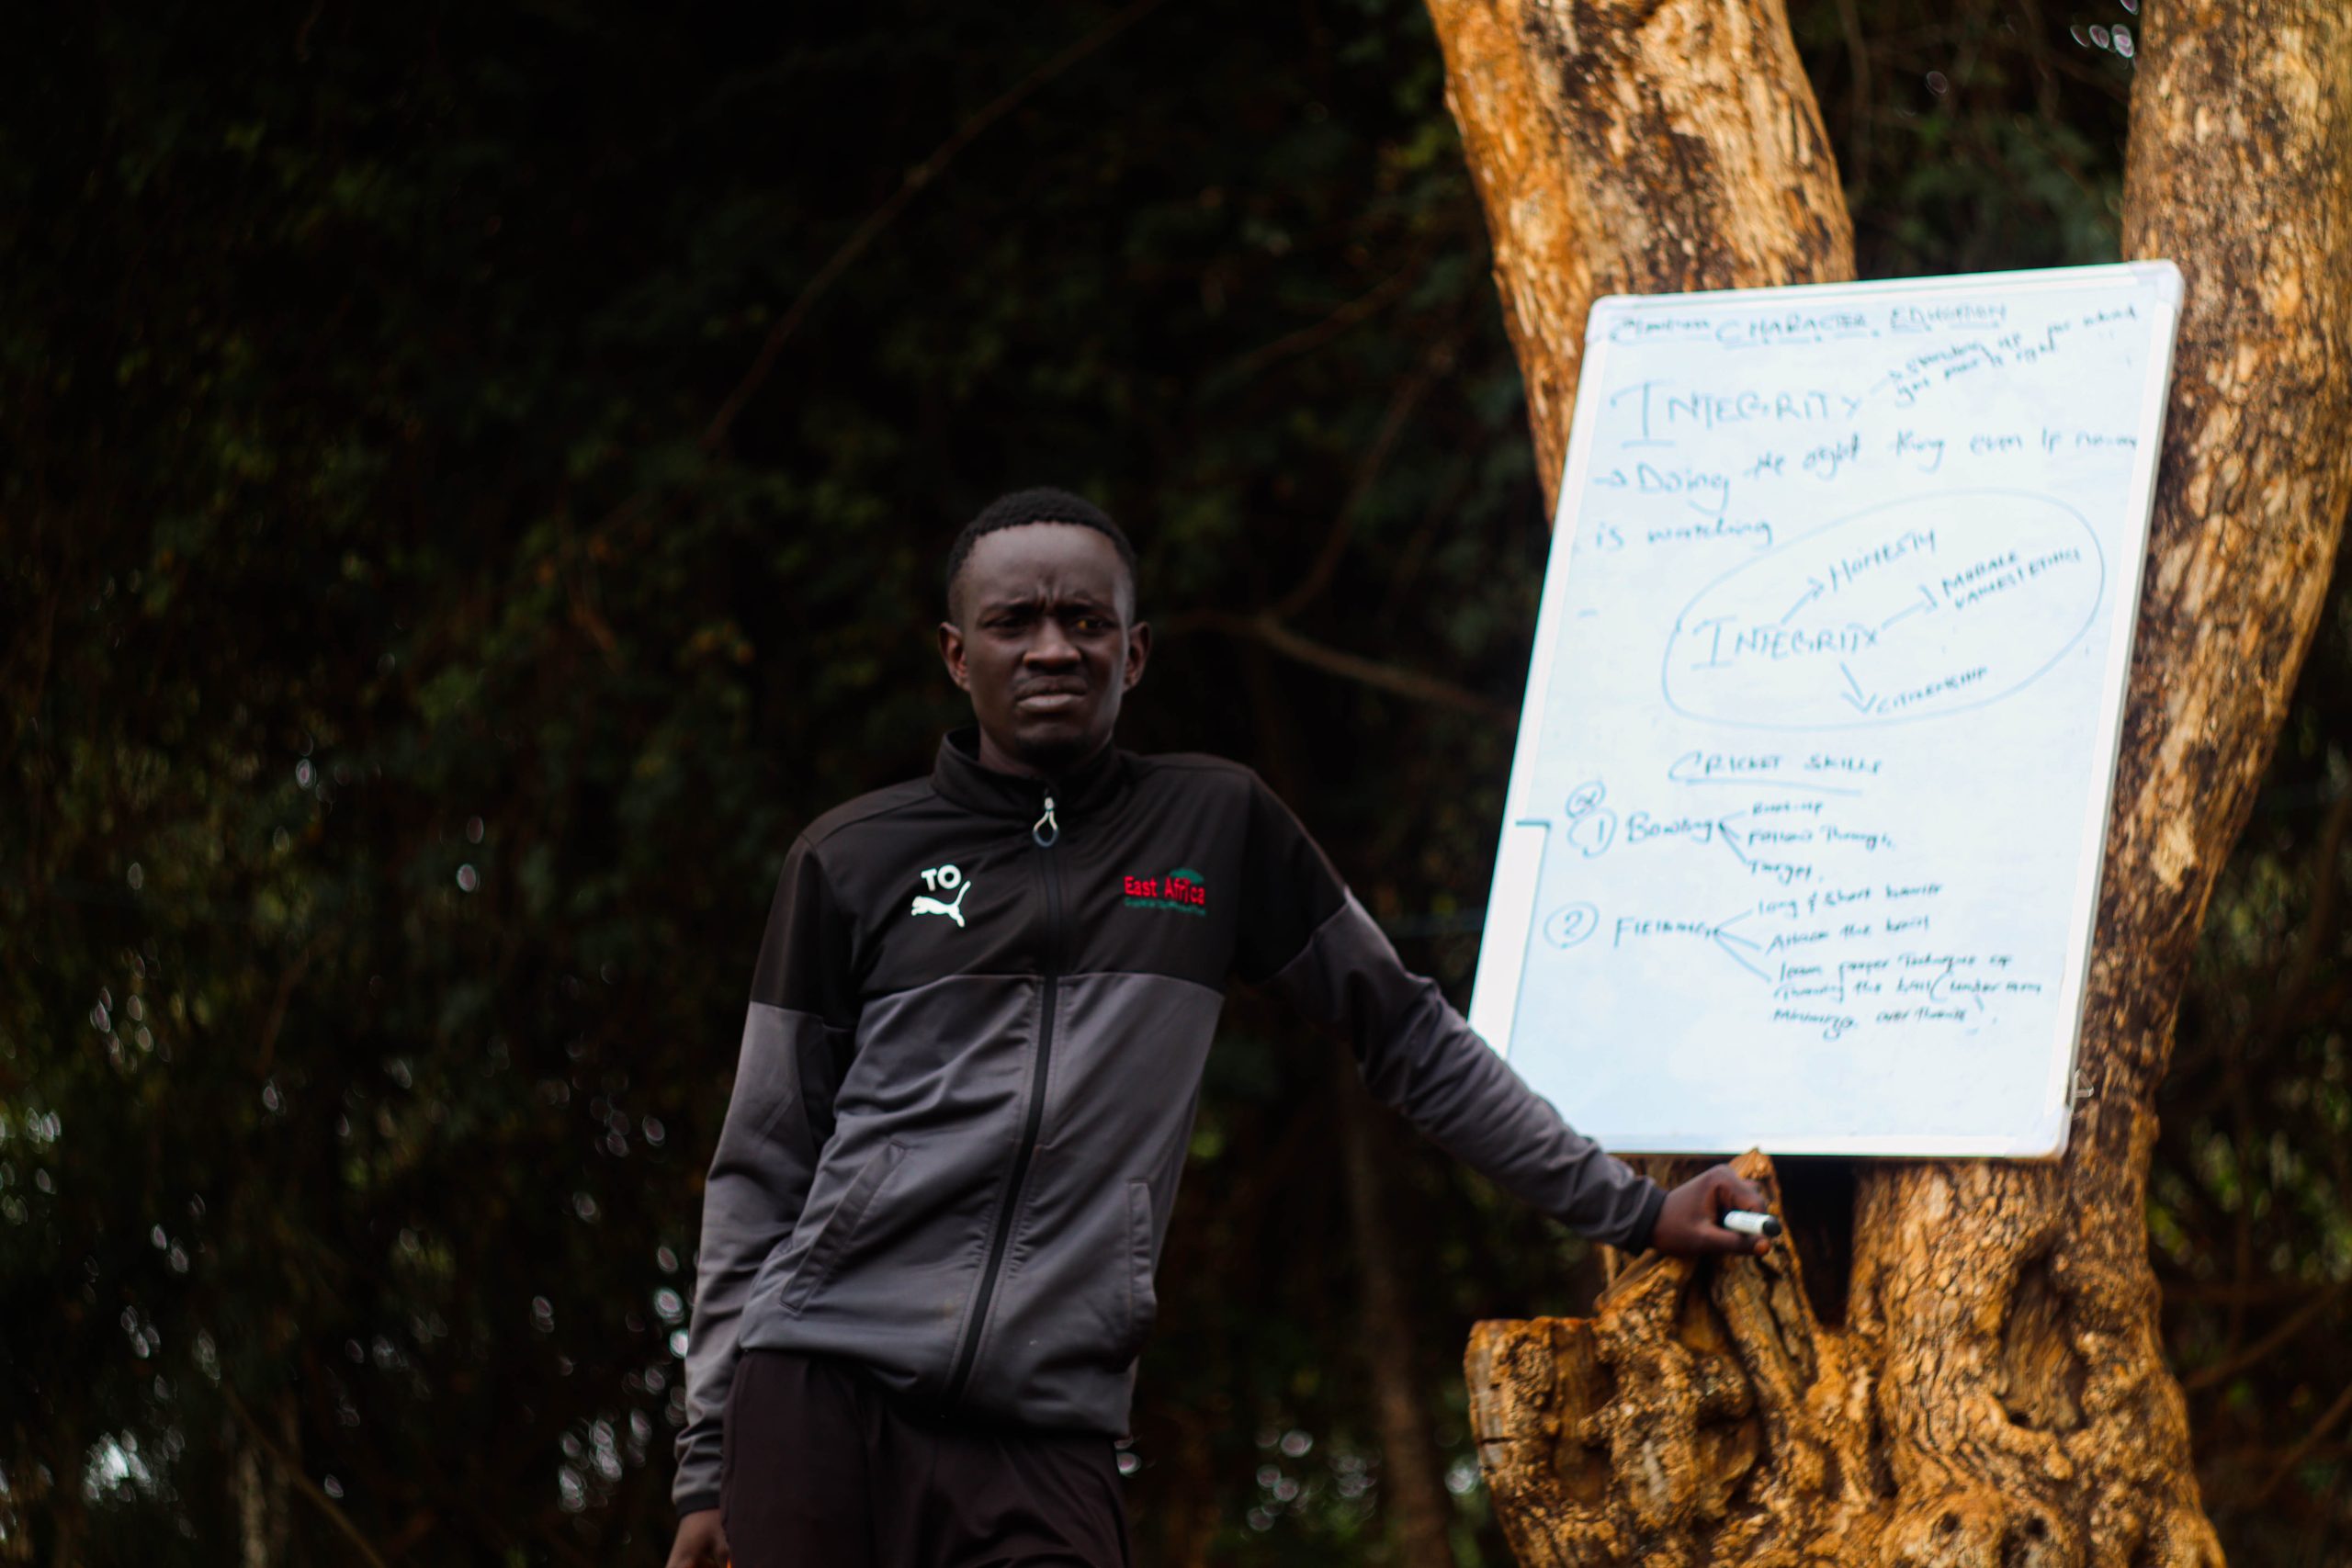 TO
East Africa
CHARACTER EDUCATION
INTEGRITY → Standing up for what
is right
→ Doing the right thing even if no-one
is watching
HONESTY
MORALE
VALUES & ETHICS
INTEGRITY
CITIZENSHIP
CRICKET SKILLS
2
1 Bowling
Run-up
Follow Through
Target
2 FIELDING
long & short barrier
Attack the ball
learn proper technique of
throwing the ball (under arm
over throws